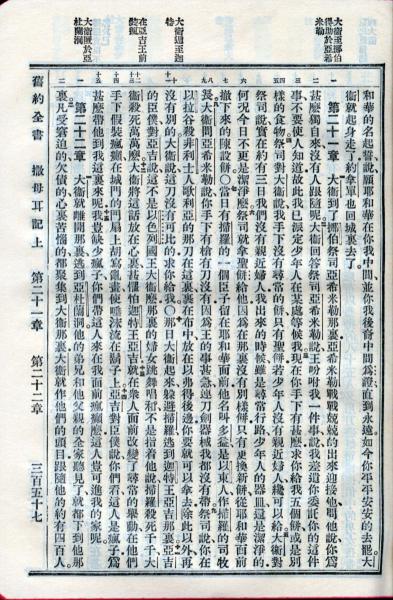 大衛至挪伯
得助於亞希
米勒
大衛逃至迦
特
在亞吉王前
裝瘋
大衛匿於亞
杜蘭洞
和華的名起誓說願耶和華在你我中間並你我後裔中間爲證直到永遠如今你平平安安的去罷大
衛就起身走了約拿單也回城裏去了
第二十一章 大衛到了挪伯祭司亞希米勒那裏亞希米勒戰戰兢兢的出來迎接他問他說你爲
甚麼獨自來沒有人跟隨呢大衛回答祭司亞希米勒說王吩咐我一件事說我差遣你委託你的這件
事不要使人知道故此我已派定少年人在某處等候我現在你手下有甚麼求你給我五個餅或是別
樣的食物祭司對大衛說我手下沒有尋常的餅只有聖餅若少年人沒有親近婦人纔可以給大衛對
祭司說實在約有三日我們沒有親近婦人我出來的時候雖是尋常行路少年人的器皿這是潔淨的
何況今日不更是潔淨麼祭司就拿聖餅給他因爲在那裏沒有別樣餅只有更換新餅從耶和華面前
撤下來的陳設餅○當日有掃羅的一個臣子留在耶和華面前他名叫多益是以東人作掃羅的司牧
長大衛問亞希米勒說你手下有槍有刀沒有因爲王的事甚急連刀劍器械我都沒有帶祭司說你在
以拉谷殺非利士人歌利亞的那刀在這裏裹在布中放在以弗得後邊你要就可以拿去除此以外再
沒有別的大衛說這刀沒有可比的求你給我○那日大衛起來躱避掃羅逃到迦特王亞吉那裏亞吉
的臣僕對亞吉說這不是以色列國王大衛麼那裏的婦女跳舞唱和不是指着他說掃羅殺死千千大
衛殺死萬萬麼大衛將這話放在心裏甚懼怕迦特王亞吉就在衆人面前改變了尋常的舉動在他們
手下假裝瘋癲在城門的門扇上胡寫亂畫使唾沫流在鬍子上亞吉對臣僕說你們看這人是瘋子爲
甚麼帶他到我這裏來呢我豈缺少瘋子你們帶這人來在我面前瘋癲麼這人豈可進我的家呢
第二十二章 大衛就離開那裏逃到亞杜蘭洞他的弟兄和他父親的全家聽見了就都下到他那
裏凡受窘迫的欠債的心裏苦惱的都聚集到大衛那裏大衛就作他們的頭目跟隨他的約有四百人
舊約全書 撒母耳記上 第二十一章 第二十二章 三百五十七